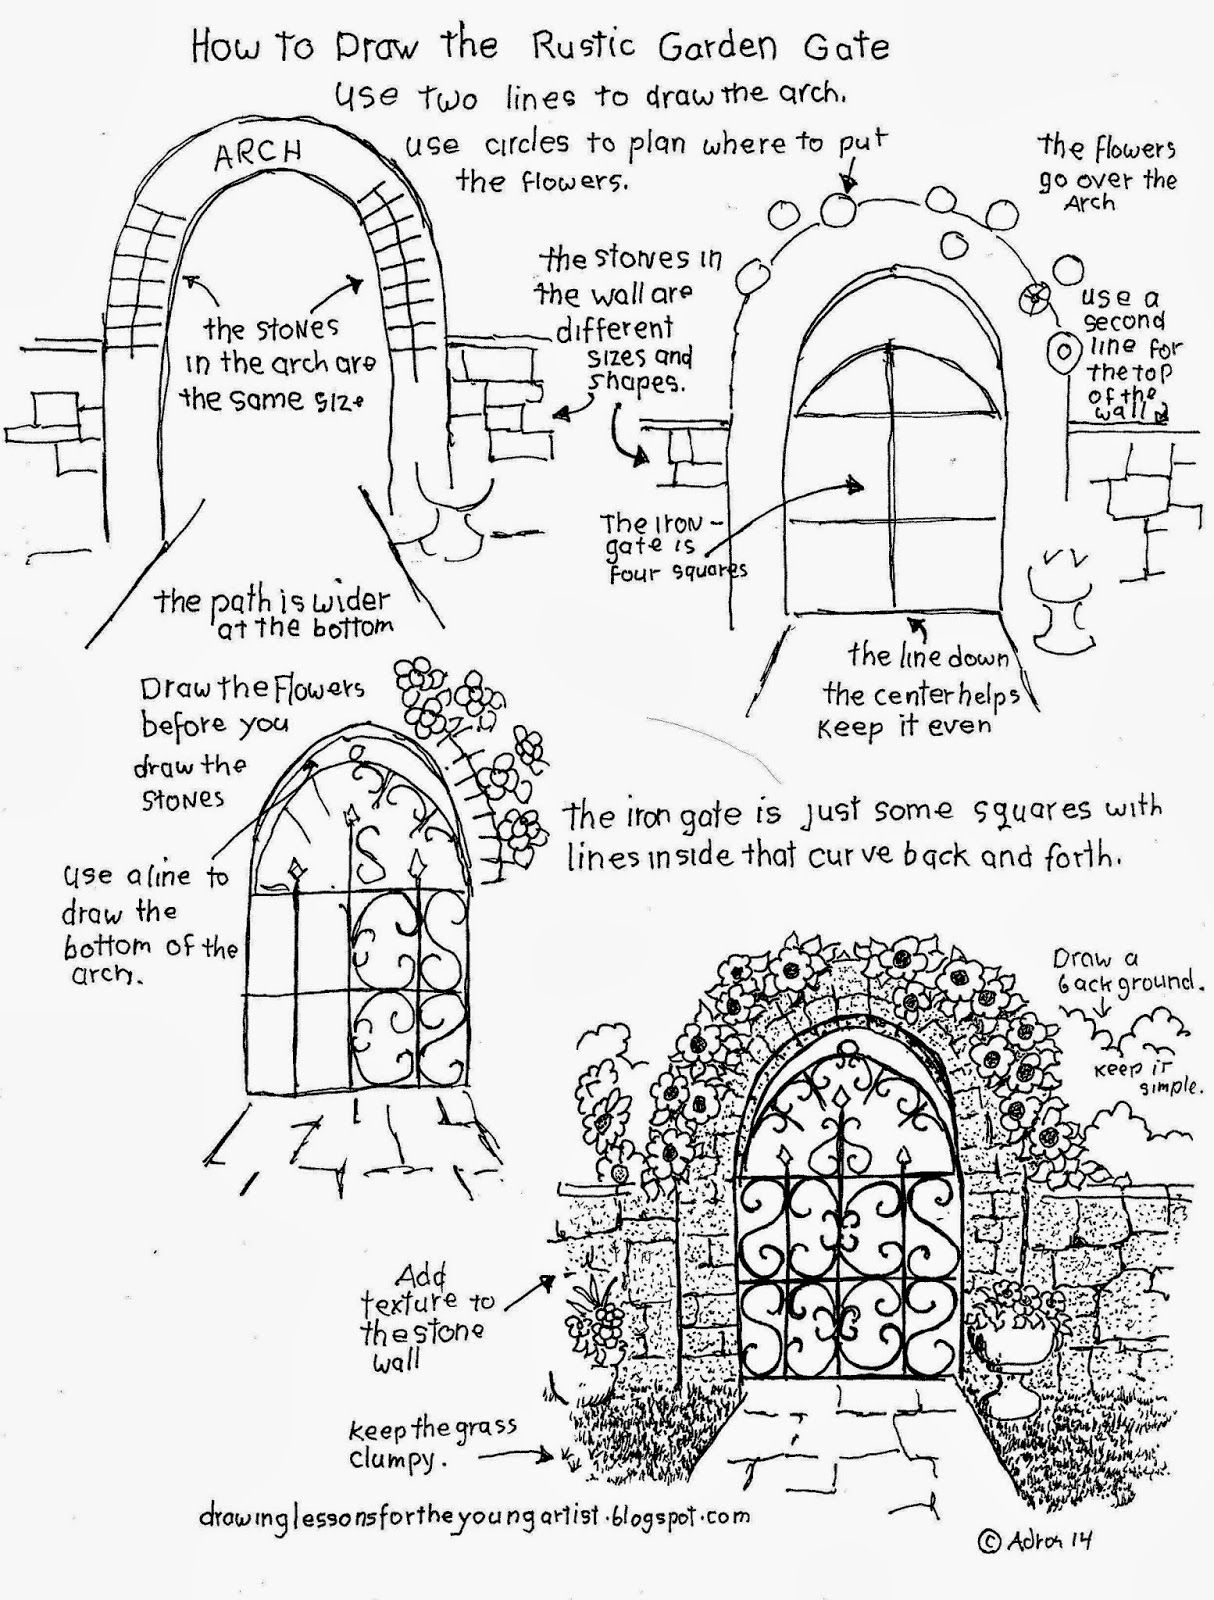 How to Draw the Rustic Garden Gate
use two lines to draw the arch.
ARCH
use circles to plan where to put
the flowers.
the flowers
go over the
Arch
the stones in
the wall are
different
sizes and
shapes.
the stones
in the arch are
the same size
use a
second
line for
the top
of the
wall
The iron-
gate is
four squares
the path is wider
at the bottom
the line down
the center helps
keep it even
Draw the Flowers
before you
draw the
stones
the iron gate is just some squares with
lines inside that curve back and forth.
use a line to
draw the
bottom of the
arch.
Draw a
background.
keep it
simple.
Add
texture to
the stone
wall
keep the grass
clumpy.
drawinglessonsfortheyoungartist.blogspot.com
© Adron 14